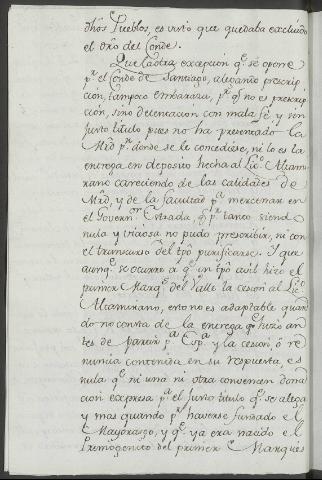 dhõs Pueblos, es visto que quedaba excluido
el dro del Conde.
Que la otra excepcion qe. se opone
pr. el Conde de Santiago, alegando prescrip
cion, tampoco embaraza, pr. qe. no es prescrip
cion, sino detencion con mala fé, y sin
justo titulo pues no ha presentado la
Mrd pr. donde se le concediese, ni lo es la
entrega en deposito hecha al Lico. Altami
rano careciendo de las calidades de
Mrd, y de la facultad pa. mercenar en
el Governr. Estrada, qe. pr. tanto siend
nula y viciosa no pudo prescribir, ni con
el transcurso del tpõ purificarse. Y que
aunqe. se ocurre a qe. un tpõ avil hizo el
primer Marqs. del Valle la cesion al Lico.
Altamirano, esto no es adaptable quan
do no consta de la entrega qe. hizo an
tes de partir pa. Espa. y la cesion, ó re
nuncia contenida en su respuesta, es
nula qe. ni una ni otra convencen dona
cion expresa pa. el justo titulo qe. se alega
y mas quando pr. haverse fundado el
Mayorasgo, y qe. ya era nacido el
Primogenito del primer Marques